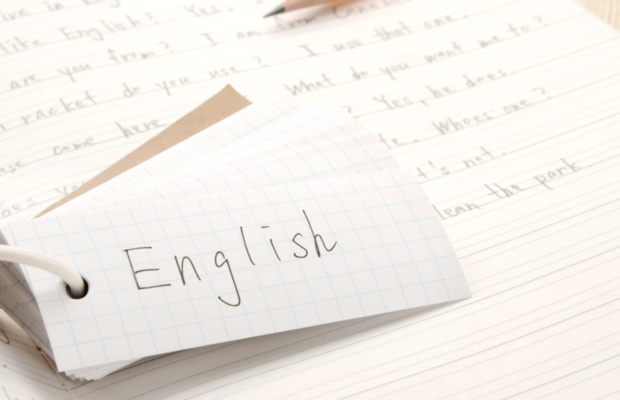 live in
like English? Yes.
are you from? I am from Canada
racket do you use? I use that one.
What do you want me to?
come here ? Yes, he does.
Whose one?
it's not.
clean the park.
English